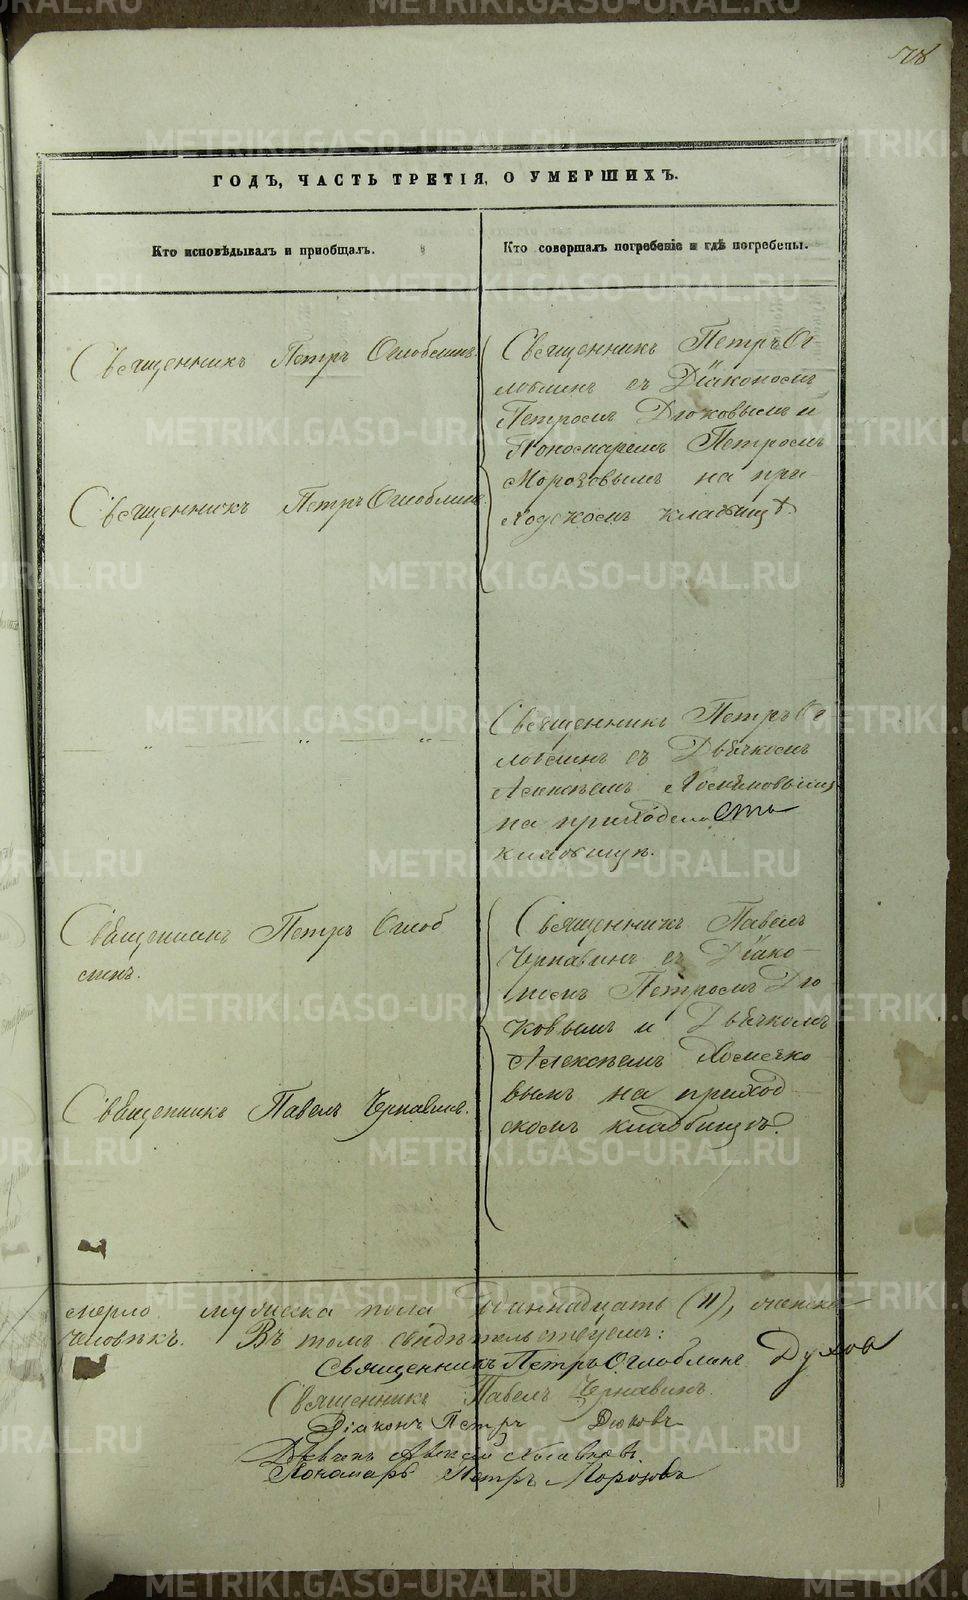 578
ГОДЪ, ЧАСТЬ ТРЕТІЯ, О УМЕРШИХЪ.
Кто исповѣдывалъ и пріобщалъ.
Кто совершалъ погребеніе и гдѣ погребены.
Священникъ Петръ Оглоблинъ.
Священникъ Петръ Ог-
лоблинъ съ Діакономъ
Петромъ Дюковымъ и
Пономаремъ Петромъ
Морозовымъ на при-
ходскомъ кладбищѣ.
Священникъ Петръ Оглоблинъ.
Священникъ Петръ Ог
лоблинъ съ Дьячкомъ
Алексѣемъ
на приходскомъ
кладбищѣ.
Священникъ Петръ Оглоб
линъ.
Священникъ Павелъ
Чернавинъ съ Діако-
номъ Петромъ Дю
ковымъ и Дьячкомъ
Алексѣемъ
вымъ на приход
скомъ кладбищѣ.
Священникъ Павелъ Чернавинъ.
мерло мужеска пола одиннадцать (11), женска
человѣкъ. Въ томъ свидѣтельствуемъ:
Священникъ Петръ Оглоблинъ
Священникъ Павелъ Чернавинъ.
Діаконъ Петръ Дюковъ
Дьячекъ Алексѣй
Пономарь Петръ Морозовъ
METRIKI.GASO-URAL.RU